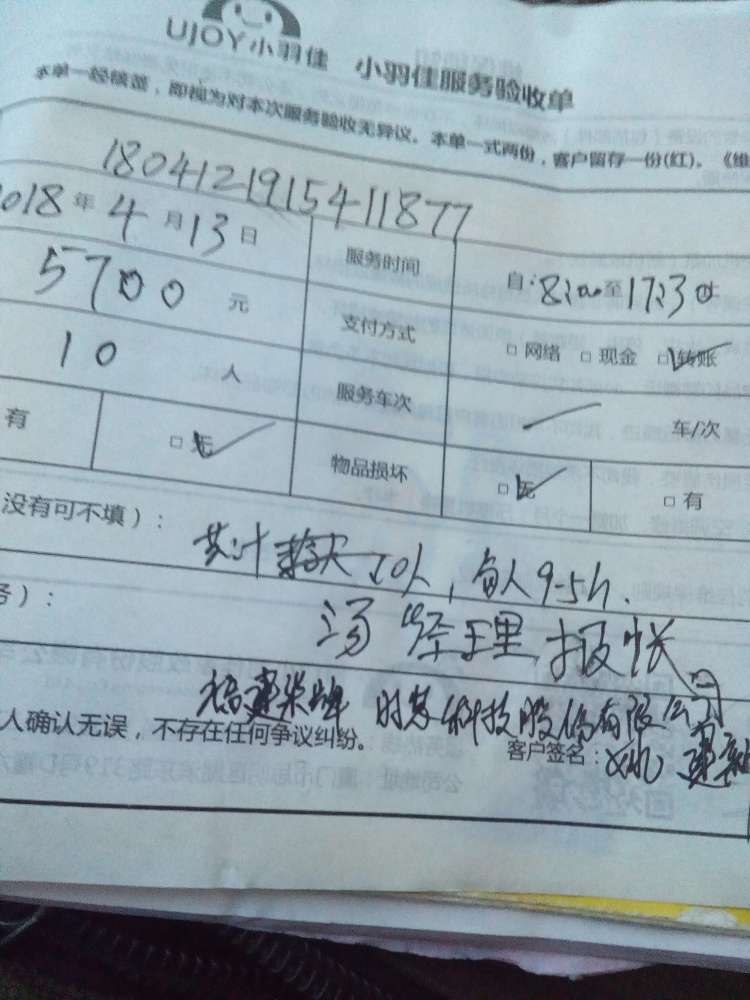 UJOY小羽佳 小羽佳服务验收单
本单一经核签，即视为对本次服务验收无异议。本单一式两份，客户留存一份(红)。《维
1804121915411877
2018年4月13日 服务时间 自：8:00至17:30止
5700元 支付方式 □网络 □现金 ☑转账
10人 服务车次 车/次
有 ☑无 物品损坏 ☑无 □有
没有可不填）：
共计 10人，每人9.5h.
务）：
汤经理报帐
福建 科技股份有限公司
人确认无误，不存在任何争议纠纷。 客户签名：